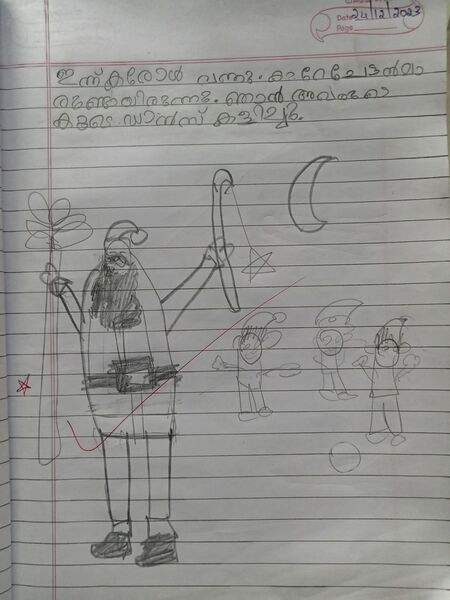 Date 24/12/2023
Page
ഇന്ന് കരോൾ വന്നു. കുറേ ചേട്ടൻമാ
രുണ്ടായിരുന്നു. ഞാൻ അവരുടെ
കൂടെ ഡാൻസ് കളിച്ചു.